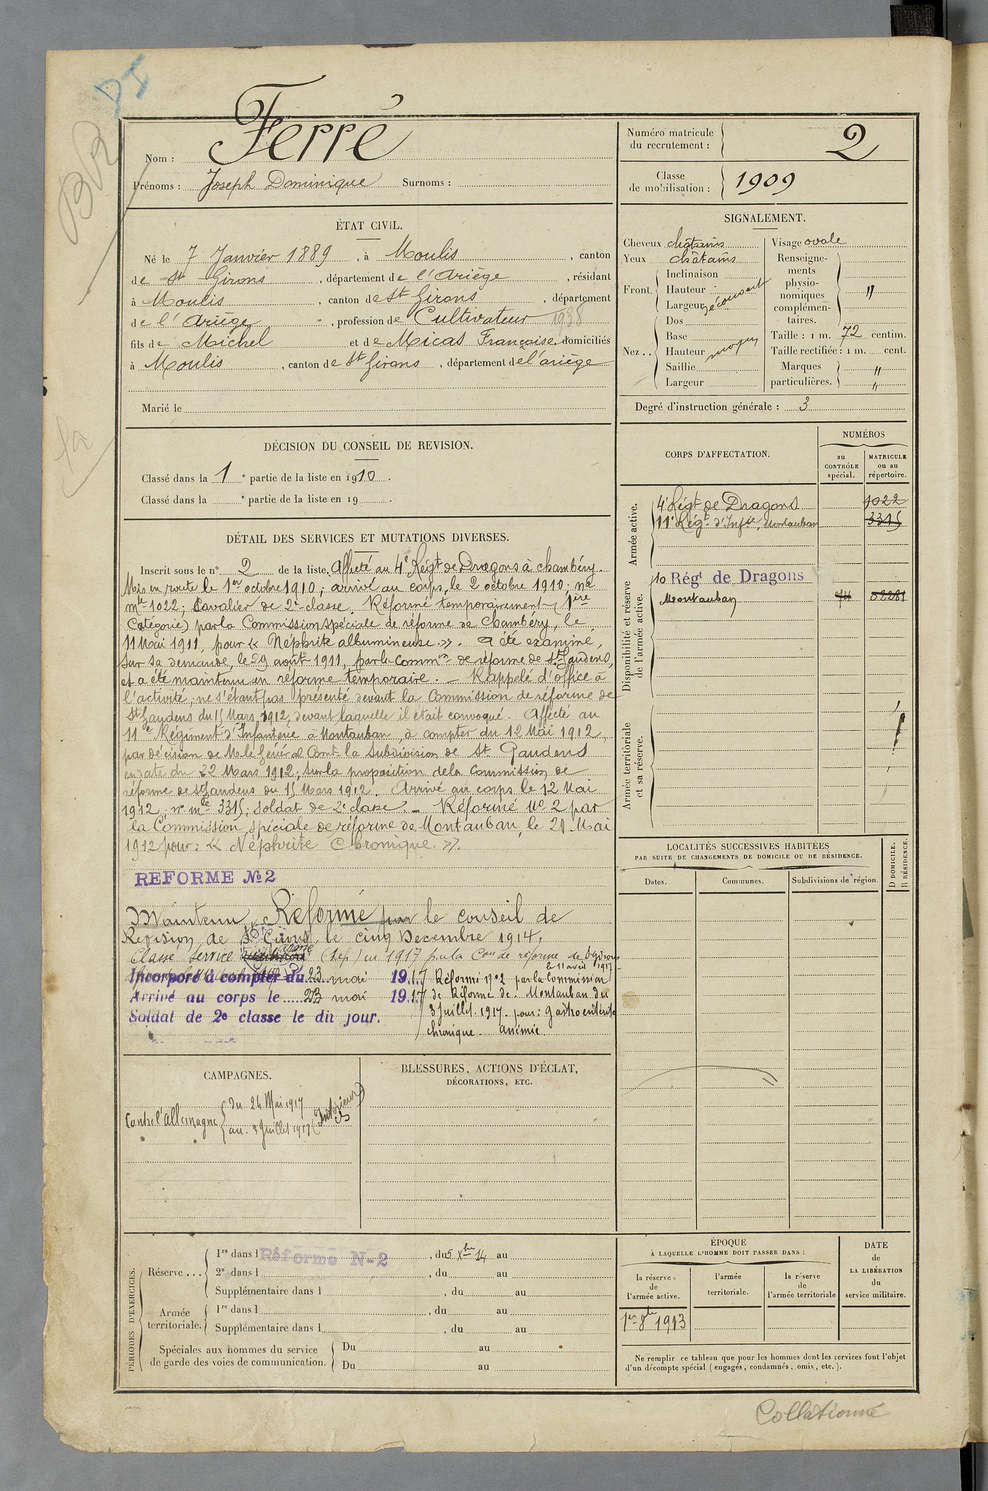 Nom : Ferré
Prénoms : Joseph Dominique Surnoms :
Numéro matricule du recrutement : 2
Classe de mobilisation : 1909
ÉTAT CIVIL.
Né le 7 Janvier 1889, à Moulis, canton
de St Girons, département de l'Ariège, résidant
à Moulis, canton de St Girons, département
de l'Ariège, profession de Cultivateur 1938
fils de Michel et de Micas Françoise, domiciliés
à Moulis, canton de St Girons, département de l'ariège
Marié le
SIGNALEMENT.
Cheveux châtains
Yeux châtains
Front. Inclinaison
Hauteur
Largeur
Nez.. Dos
Base
Hauteur moyen
Saillie
Largeur
Visage ovale
Renseignements physionomiques complémentaires. "
Taille : 1 m. 72 centim.
Taille rectifiée : 1 m. cent.
Marques particulières. " "
Degré d'instruction générale : 3
DÉCISION DU CONSEIL DE REVISION.
Classé dans la 1e partie de la liste en 1910.
Classé dans la e partie de la liste en 19 .
DÉTAIL DES SERVICES ET MUTATIONS DIVERSES.
Inscrit sous le n° 2 de la liste. Affecté au 4e Régt de Dragons à chambéry.
Mis en route le 1er octobre 1910; arrivé au corps, le 2 octobre 1910; no
mle 1022; Cavalier de 2e classe. Réformé temporairement (1ère
Catégorie) par la Commission spéciale de réforme de Chambéry, le
11 Mai 1911, pour « Néphrite albumineuse ». A été examiné,
sur sa demande, le 29 août 1911, par la Common de réforme de St Gaudens,
et a été maintenu en réforme temporaire. — Rappelé d'office à
l'activité, ne s'étant pas présenté devant la Commission de réforme de
St Gaudens du 15 Mars 1912, devant laquelle il était convoqué. Affecté au
11e Régiment d'Infanterie à Montauban, à compter du 12 Mai 1912,
par décision de M. le Général Comt la Subdivision de St Gaudens
en date du 22 Mars 1912, sur la proposition de la Commission de
réforme de St Gaudens du 15 Mars 1912. Arrivé au corps le 12 Mai
1912; no mle 3315; Soldat de 2e classe. — Réformé No 2 par
la Commission spéciale de réforme de Montauban, le 21 Mai
1912 pour: « Néphrite Chronique. ».
REFORME No 2
Maintenu Réformé par le conseil de
Revision de St Girons, le cinq Decembre 1914.
Classé Service armé (Sep) en 1917 par la Con de réforme
Incorporé à compter du 23 mai 1917
Arrivé au corps le 23 mai 1917
Soldat de 2e classe le dit jour.
Réformé no 2 par la Commission
de Réforme de Montauban du
3 Juillet 1917 pour: gastro entérite
chronique. anémie
CORPS D'AFFECTATION.
NUMÉROS
au CONTRÔLE spécial.
MATRICULE ou au répertoire.
Armée active.
4e Régt de Dragons 1022
11e Régt d'Infie, Montauban 3315
Disponibilité et réserve de l'armée active.
10 Régt de Dragons
Montauban
Armée territoriale et sa réserve.
LOCALITÉS SUCCESSIVES HABITÉES
PAR SUITE DE CHANGEMENTS DE DOMICILE OU DE RÉSIDENCE.
Dates. Communes. Subdivisions de région. D DOMICILE. R RÉSIDENCE.
CAMPAGNES.
Contre l'Allemagne du 24 Mai 1917
au 3 Juillet 1917 Intérieur
BLESSURES, ACTIONS D'ÉCLAT,
DÉCORATIONS, ETC.
PÉRIODES D'EXERCICES.
Réserve ... 1re dans l Réforme No 2, du 5 Xbre 14 au
2e dans l , du au
Supplémentaire dans l , du au
Armée territoriale. 1re dans l , du au
Supplémentaire dans l , du au
Spéciales aux hommes du service de garde des voies de communication. Du au
Du au
ÉPOQUE
À LAQUELLE L'HOMME DOIT PASSER DANS :
la réserve de l'armée active. l'armée territoriale. la réserve de l'armée territoriale
DATE de LA LIBÉRATION du service militaire.
1er 8bre 1913
Ne remplir ce tableau que pour les hommes dont les services font l'objet
d'un décompte spécial (engagés, condamnés, omis, etc.).
Collationné